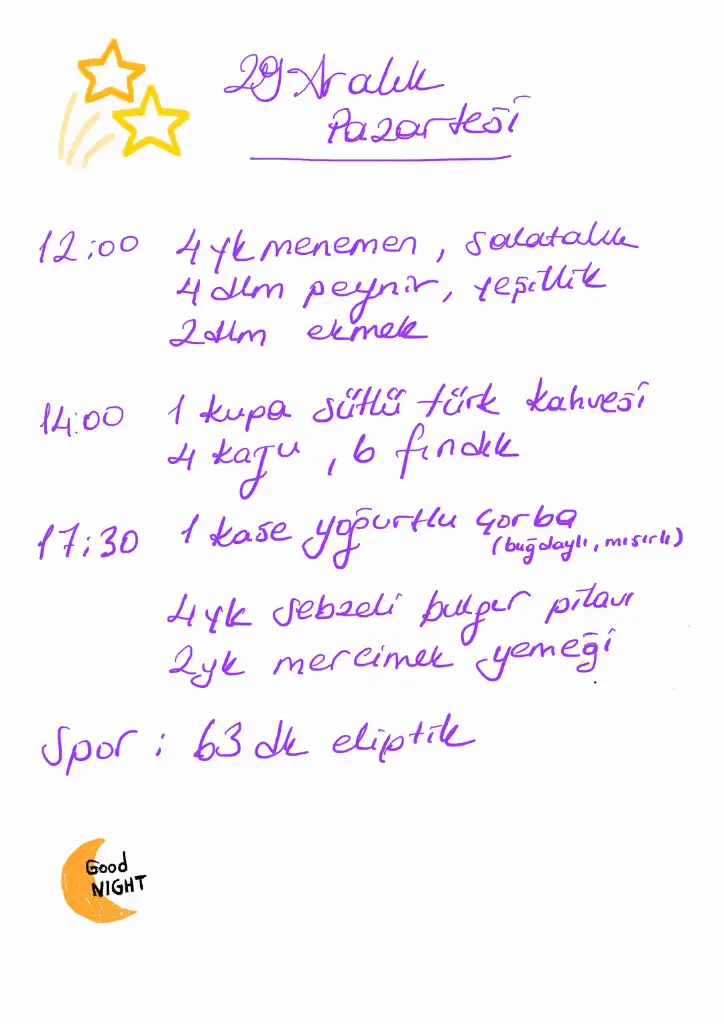 29 Aralık
Pazartesi
12:00 4 yk menemen, salatalık
4 dlm peynir, yeşillik
2 dlm ekmek
14:00 1 kupa sütlü türk kahvesi
4 kaju, 6 fındık
17:30 1 kase yoğurtlu çorba
(buğdaylı, mısırlı)
4 yk sebzeli bulgur pilavı
2 yk mercimek yemeği
Spor: 63 dk eliptik
Good
NIGHT